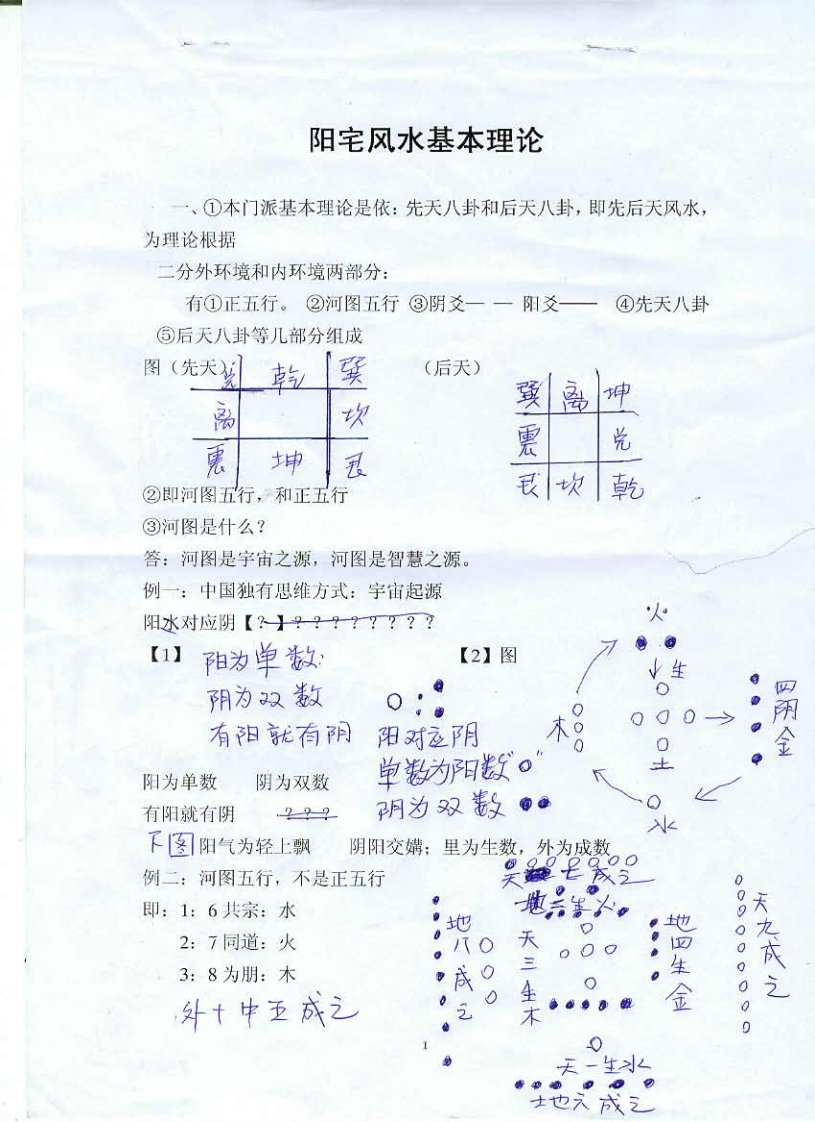 阳宅风水基本理论
一、①本门派基本理论是依：先天八卦和后天八卦，即先后天风水，
为理论根据
二分外环境和内环境两部分：
有①正五行。 ②河图五行 ③阴爻— — 阳爻—— ④先天八卦
⑤后天八卦等几部分组成
图（先天） （后天）
兑 乾 巽
离 坎
震 坤 艮
巽 离 坤
震 兑
艮 坎 乾
②即河图五行，和正五行
③河图是什么？
答：河图是宇宙之源，河图是智慧之源。
例一：中国独有思维方式：宇宙起源
阳水对应阴【？】？？？？？？？？？
【1】 【2】图
阳为单数
阴为双数
有阳就有阴
阳对应阴
单数为阳数
阴为双数
火
生
木
土
水
四阴金
阳为单数 阴为双数
有阳就有阴 ？？？
下图阳气为轻上飘 阴阳交媾；里为生数，外为成数
例二：河图五行，不是正五行
即：1：6共宗：水
2：7同道：火
3：8为朋：木
外十中五成之
天七成之
地二生火
地八成之
天三生木
地四生金
天九成之
天一生水
地六成之
1